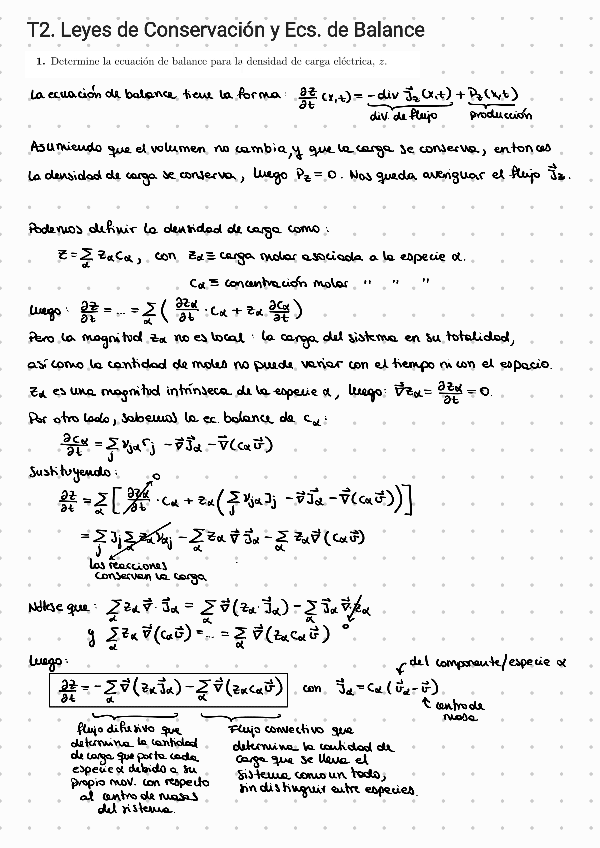 T2. Leyes de Conservación y Ecs. de Balance
1. Determine la ecuación de balance para la densidad de carga eléctrica, z.
La ecuación de balance tiene la forma: ∂z/∂t (x,t) = - div J⃗z (x,t) + Pz(x,t)
div. de flujo producción
Asumiendo que el volumen no cambia, y que la carga se conserva, entonces
la densidad de carga se conserva, luego Pz = 0. Nos queda averiguar el flujo J⃗z.
Podemos definir la densidad de carga como:
z = Σα zα cα, con zα ≡ carga molar asociada a la especie α.
cα ≡ concentración molar " " "
luego: ∂z/∂t = ... = Σα ( ∂zα/∂t · cα + zα ∂cα/∂t )
Pero la magnitud zα no es local: la carga del sistema en su totalidad,
así como la cantidad de moles no puede variar con el tiempo ni con el espacio.
zα es una magnitud intrínseca de la especie α, luego: ∇⃗zα = ∂zα/∂t = 0.
Por otro lado, sabemos la ec. balance de cα:
∂cα/∂t = Σj νjα rj - ∇⃗J⃗α - ∇⃗(cα v⃗)
Sustituyendo:
∂z/∂t = Σα [ ∂zα/∂t · cα + zα ( Σj νjα Jj - ∇⃗J⃗α - ∇⃗(cα v⃗) ) ]
0
= Σj Jj Σα zα ναj - Σα zα ∇⃗ J⃗α - Σα zα ∇⃗ (cα v⃗)
las reacciones
conservan la carga
Nótese que: Σα zα ∇⃗ · J⃗α = Σα ∇⃗ (zα · J⃗α) - Σα J⃗α ∇⃗ zα
0
y Σα zα ∇⃗ (cα v⃗) = ... = Σα ∇⃗ (zα cα v⃗)
luego:
del componente/especie α
∂z/∂t = - Σα ∇⃗ (zα J⃗α) - Σα ∇⃗ (zα cα v⃗) con J⃗α = cα (v⃗α - v⃗)
centro de
masa
flujo difusivo que
determina la cantidad
de carga que porta cada
especie α debido a su
propio mov. con respecto
al centro de masas
del sistema.
Flujo convectivo que
determina la cantidad de
carga que se lleva el
sistema como un todo,
sin distinguir entre especies.